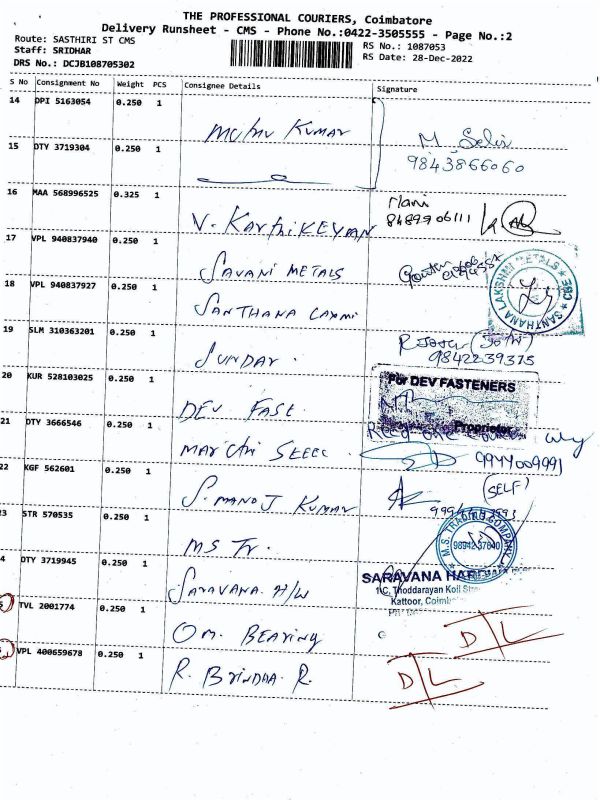 THE PROFESSIONAL COURIERS, Coimbatore
Delivery Runsheet - CMS - Phone No.:0422-3505555 - Page No.:2
Route: SASTHIRI ST CMS
Staff: SRIDHAR
DRS No.: DCJB108705302
RS No.: 1087053
RS Date: 28-Dec-2022
S No Consignment No Weight PCS Consignee Details Signature
14 DPI 5163054 0.250 1
Muthu Kumar
M. Selvi
15 DTY 3719304 0.250 1
9843866060
16 MAA 568996525 0.325 1
V. KarthiKEYAN
Mani
8489906111
17 VPL 940837940 0.250 1
SAVANI METALS
18 VPL 940837927 0.250 1
SANTHANA LAXMI
SANTHANA LAKSHMI METALS ★ CBE ★
19 SLM 310363201 0.250 1
SUNDAR.
9842239375
20 KUR 528103025 0.250 1
DEV FAST.
For DEV FASTENERS
Proprietor
21 DTY 3666546 0.250 1
MARUTHI STEEL
9944009991
22 KGF 562601 0.250 1
S. MANOJ KUMAR
(SELF)
23 STR 570535 0.250 1
MS Tr.
M.S. TRADING COMPANY
98942 37640
4 DTY 3719945 0.250 1
SARAVANA H/W
SARAVANA HARDWARE
1C, Thoddarayan Koil Stre
Kattoor, Coimb
5 TVL 2001774 0.250 1
OM. BEARING
D/L
VPL 400659678 0.250 1
R. BRINDHA. R.
D/L